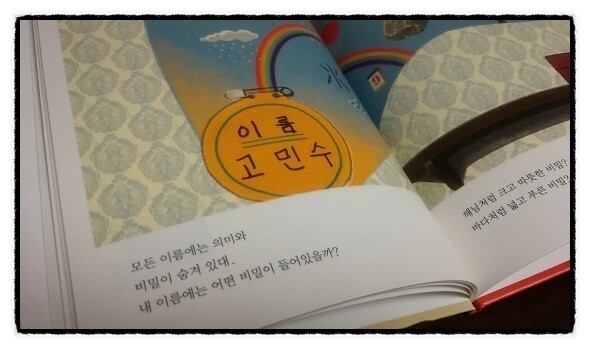 이름
고민수
모든 이름에는 의미와
비밀이 숨겨 있대.
내 이름에는 어떤 비밀이 들어있을까?
해님처럼 크고 따뜻한 비밀?
바다처럼 넓고 푸른 비밀?